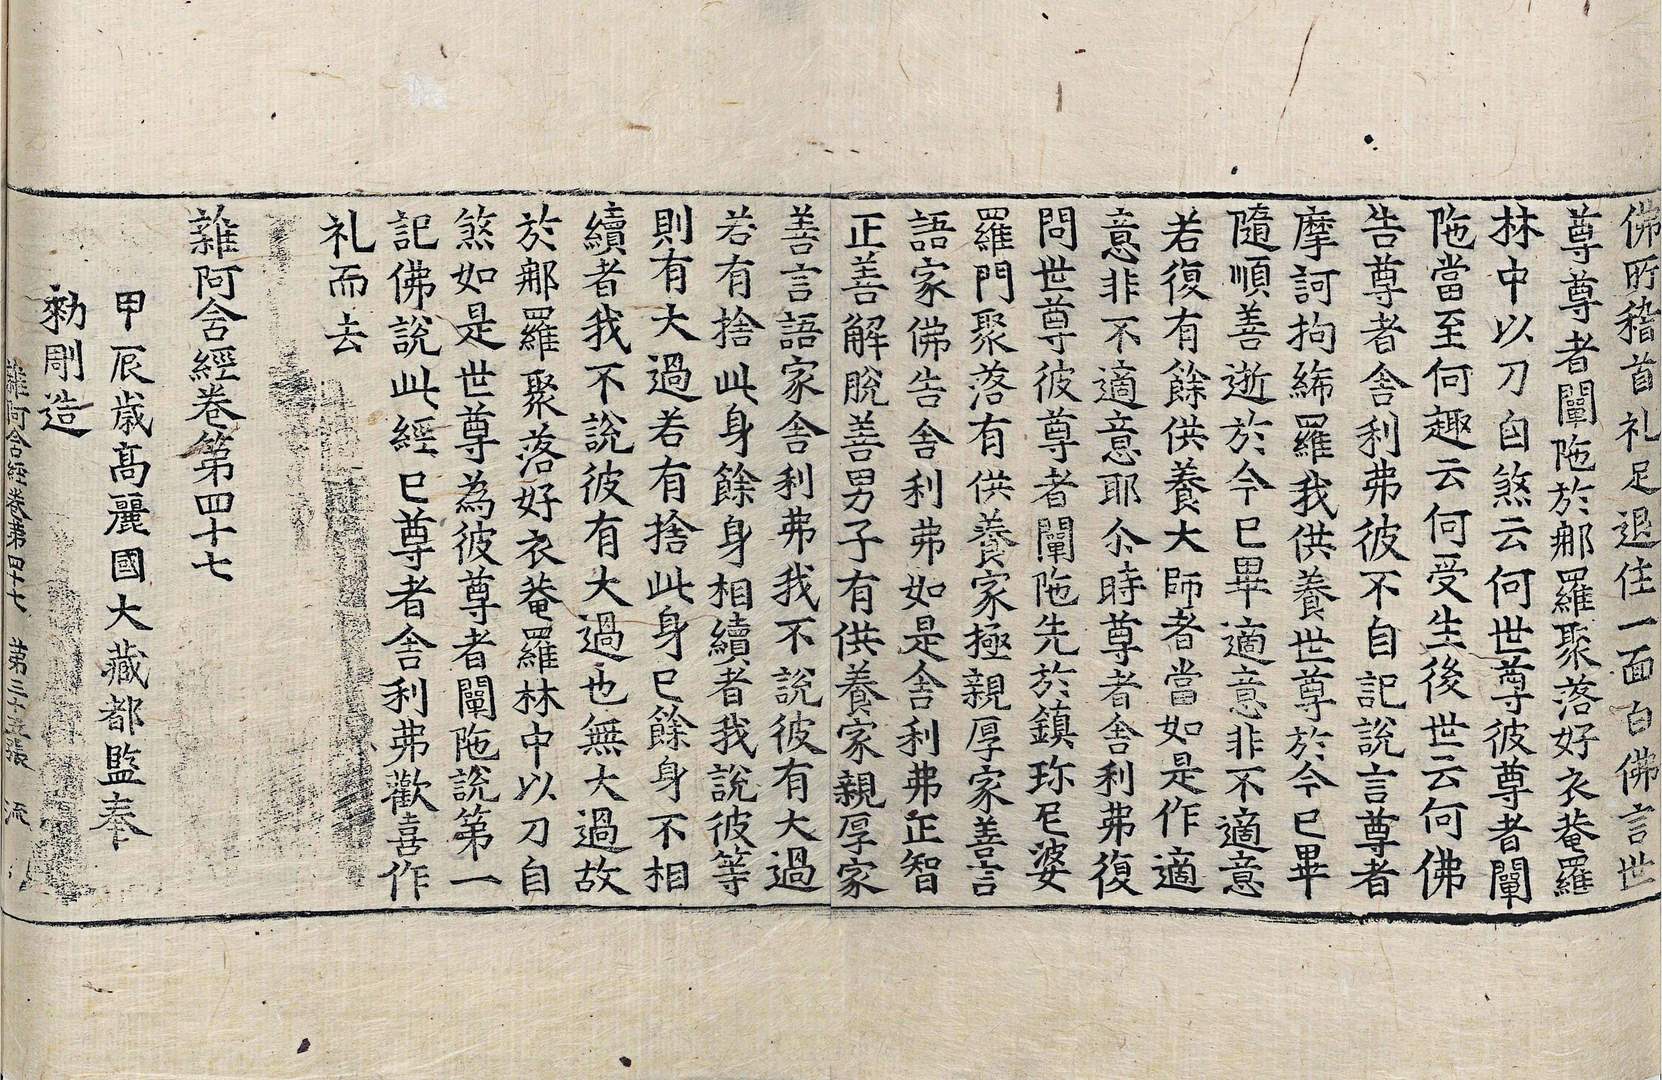 佛所稽首礼足退住一面白佛言世
尊尊者闡陁於郍羅聚落好衣菴羅
林中以刀自煞云何世尊彼尊者闡
陁當至何趣云何受生後世云何佛
告尊者舍利弗彼不自記說言尊者
摩訶拘絺羅我供養世尊於今已畢
隨順善逝於今已畢適意非不適意
若復有餘供養大師者當如是作適
意非不適意耶尒時尊者舍利弗復
問世尊彼尊者闡陁先於鎮珎尼婆
羅門聚落有供養家極親厚家善言
語家佛告舍利弗如是舍利弗正智
正善解脫善男子有供養家親厚家
善言語家舍利弗我不說彼有大過
若有捨此身餘身相續者我說彼等
則有大過若有捨此身已餘身不相
續者我不說彼有大過也無大過故
於郍羅聚落好衣菴羅林中以刀自
煞如是世尊為彼尊者闡陁說第一
記佛說此經已尊者舍利弗歡喜作
礼而去
雜阿含經卷第四十七
甲辰歲高麗國大藏都監奉
勑彫造
雜阿含經卷第四十七 第三十五張 流